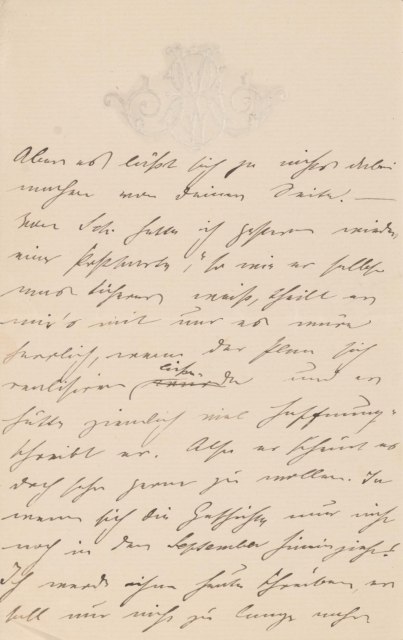 Aber es läßt sich ja nichts dabei
machen von Deiner Seite. —
Von Sch. hatte ich gestern wieder
eine Postkarte, "so wie er selbst
was sicheres weiß, theilt er
mir's mit und es wäre
herrlich, wenn der Plan sich
realisiren ließe
und er
hätte ziemlich viel Hoffnung"
schreibt er. Also er scheint es
doch sehr gerne zu wollen. Ja
wenn sich die Geschichte nur nicht
noch in den September hinein zieht!
Ich werde ihm heute schreiben, er
soll nur nicht zu lange mehr